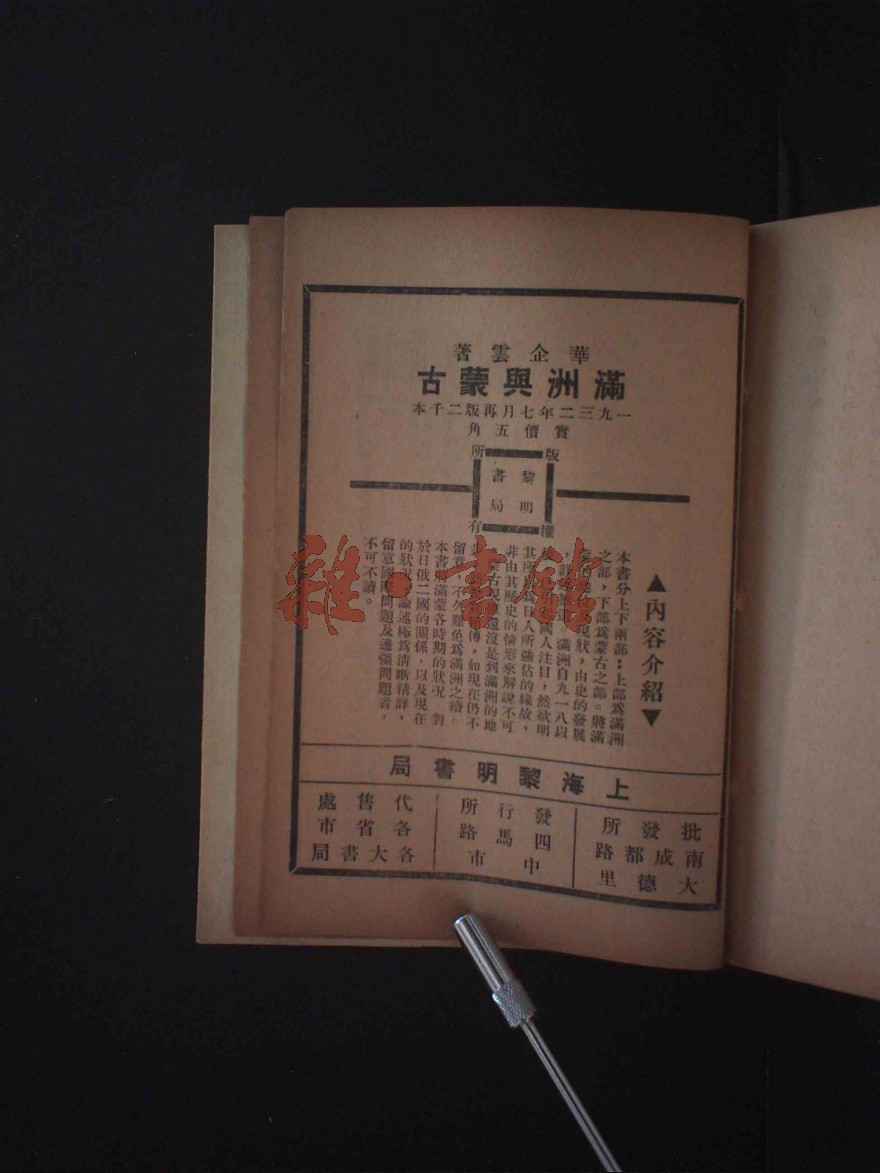 華企雲著
滿洲與蒙古
一九三二年七月再版二千本
實價五角
版權所有
黎明書局
▲內容介紹▼
本書分上下兩部：上部爲滿洲
之部，下部爲蒙古之部。將滿
現狀，由史的發展
滿洲自九一八以
國人注目，然欲明
其所日人所強佔的緣故，
非由其歷史的情形來解說不可
古現還沒是到滿洲的地
傳，如現在仍不
留意，不久難免爲滿洲之續。
本書將滿蒙各時期的狀況 對
於日俄二國的關係，以及現在
的狀況論述極爲清晰精詳，
留意國際問題及邊疆問題者，
不可不讀。
上海黎明書局
批發所
南成都路
大德里
發行所
四馬路
中市
代售處
各省市
各大書局
雜·書館